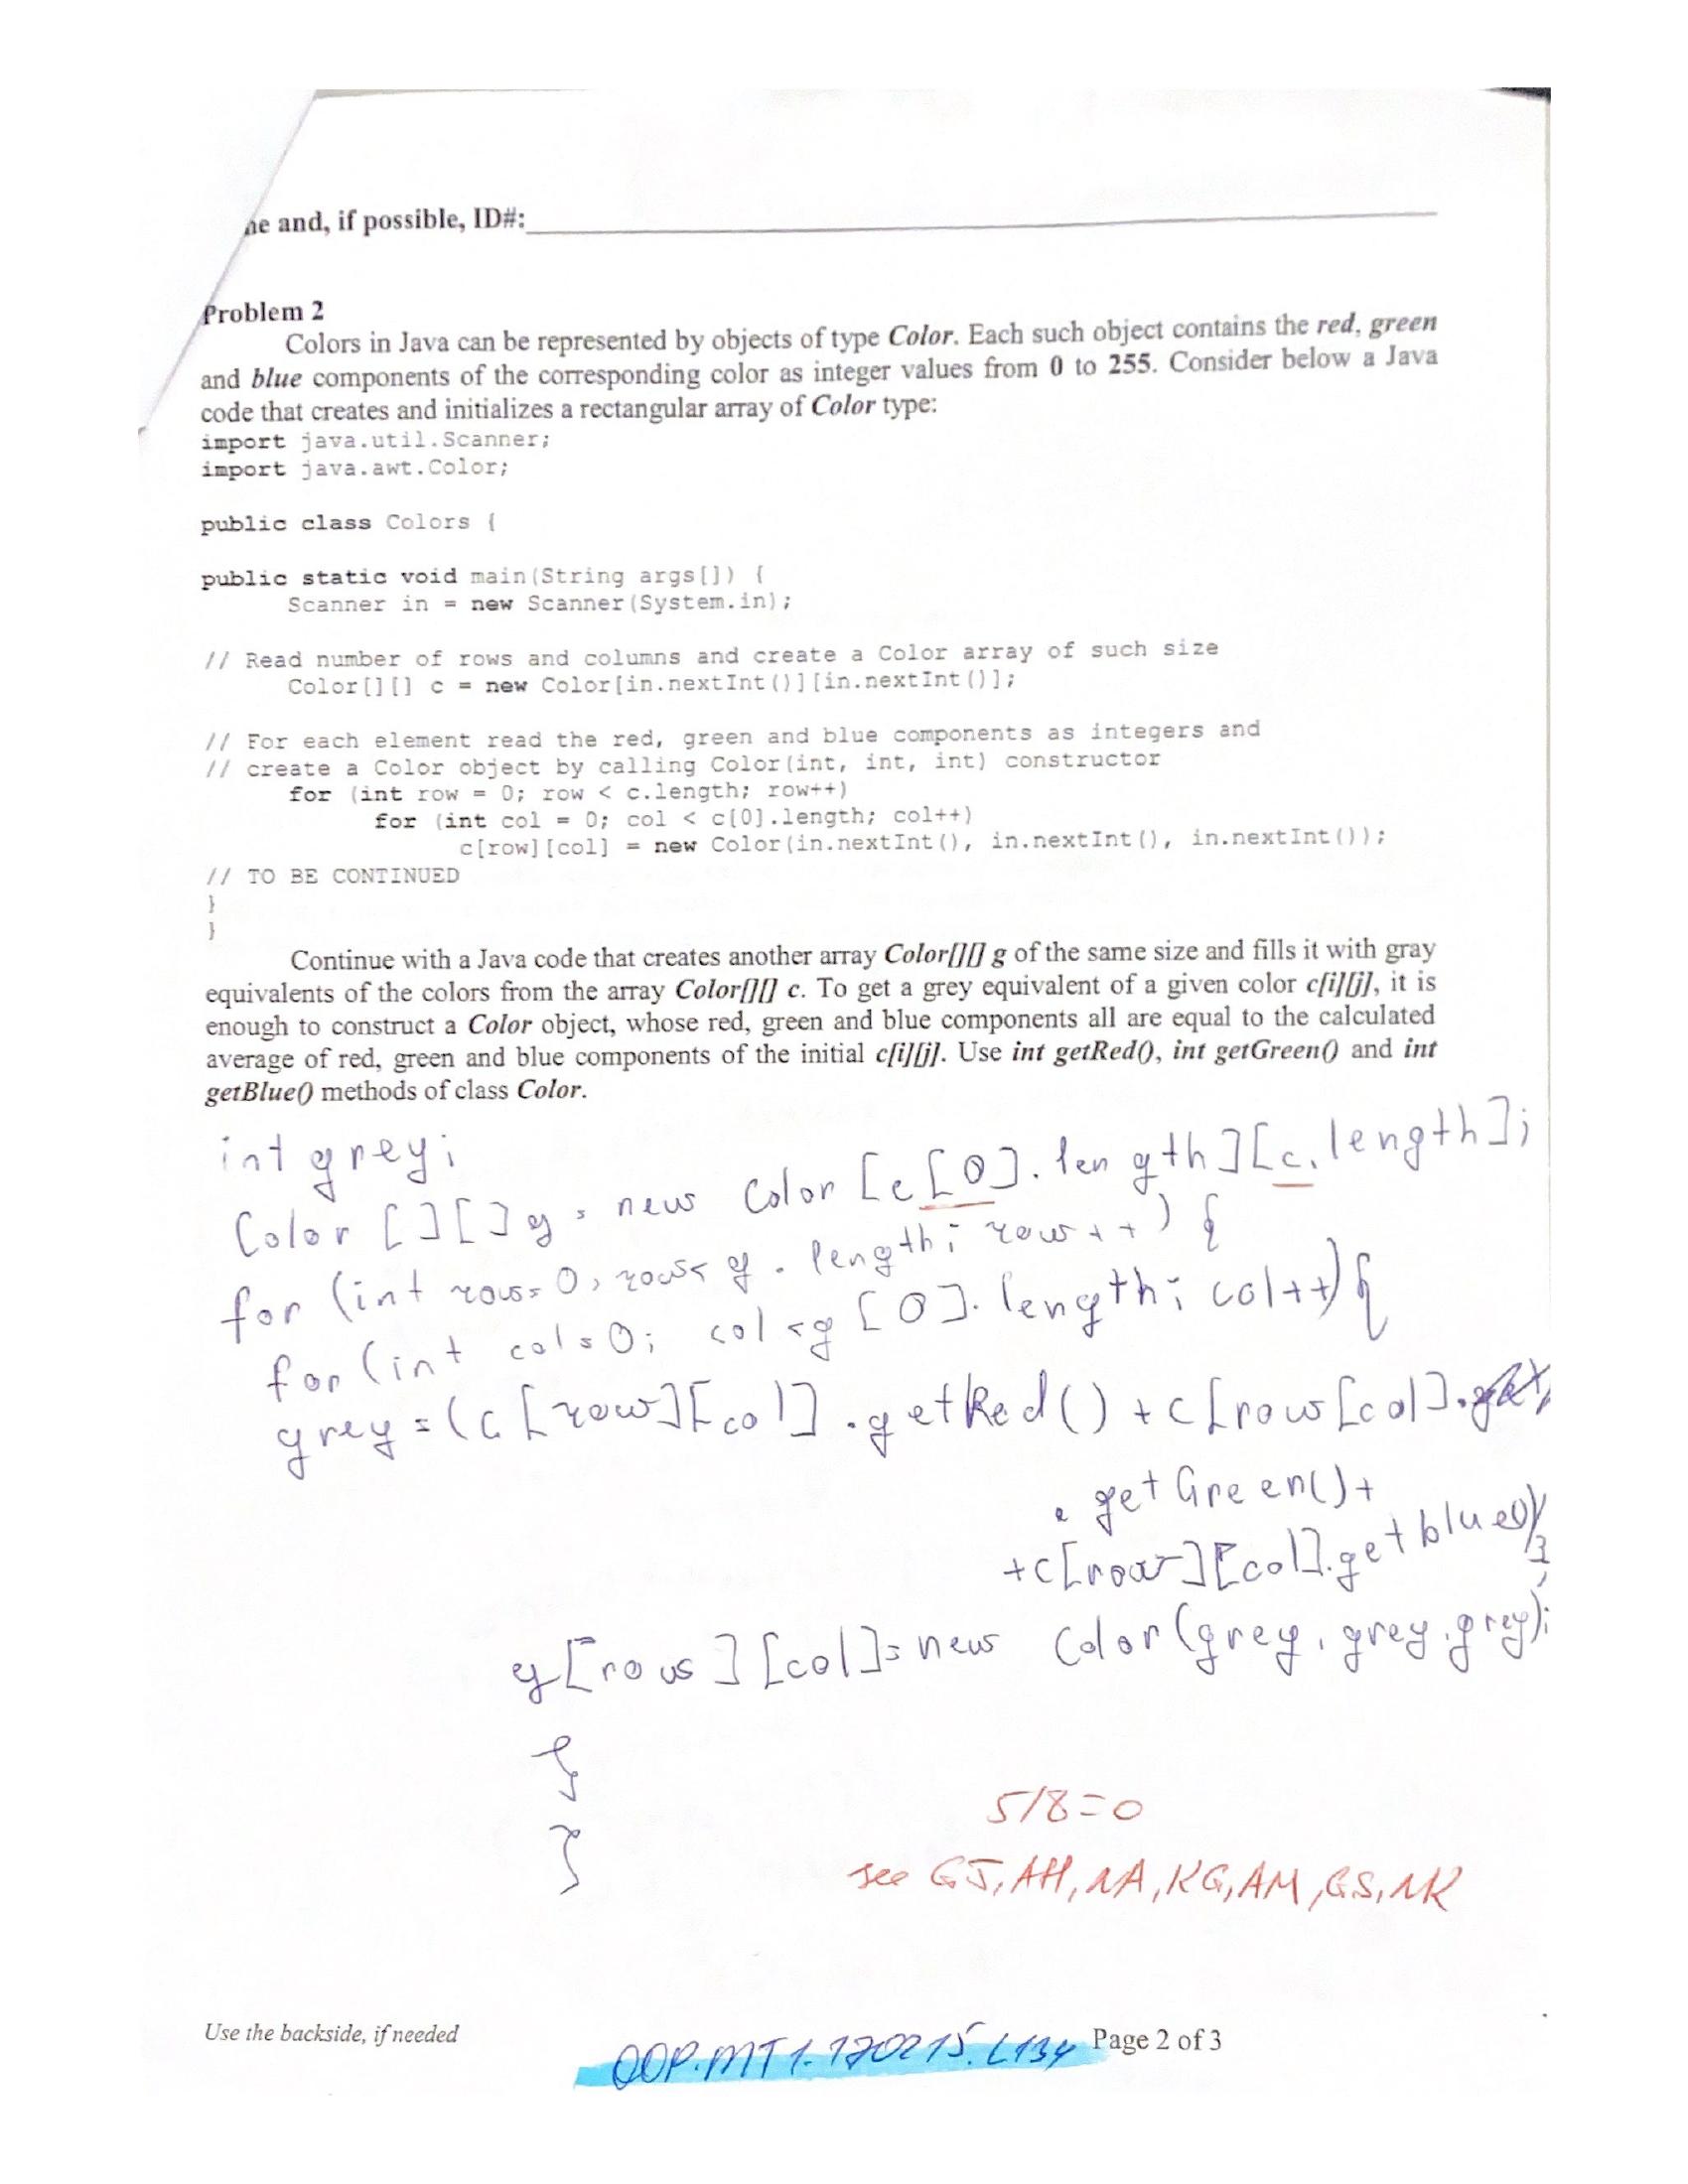 ne and, if possible, ID#:
Problem 2
Colors in Java can be represented by objects of type Color. Each such object contains the red, green
and blue components of the corresponding color as integer values from 0 to 255. Consider below a Java
code that creates and initializes a rectangular array of Color type:
import java.util.Scanner;
import java.awt.Color;
public class Colors {
public static void main(String args[]) {
Scanner in = new Scanner(System.in);
// Read number of rows and columns and create a Color array of such size
Color[][] c = new Color[in.nextInt()][in.nextInt()];
// For each element read the red, green and blue components as integers and
// create a Color object by calling Color(int, int, int) constructor
for (int row = 0; row < c.length; row++)
for (int col = 0; col < c[0].length; col++)
c[row][col] = new Color(in.nextInt(), in.nextInt(), in.nextInt());
// TO BE CONTINUED
}
}
Continue with a Java code that creates another array Color[][] g of the same size and fills it with gray
equivalents of the colors from the array Color[][] c. To get a grey equivalent of a given color c[i][j], it is
enough to construct a Color object, whose red, green and blue components all are equal to the calculated
average of red, green and blue components of the initial c[i][j]. Use int getRed(), int getGreen() and int
getBlue() methods of class Color.
int grey;
Color [][] g = new Color [c[0].length][c.length];
for (int row = 0, row < g.length; row++) {
for (int col = 0; col < g[0].length; col++) {
grey = (c[row][col].getRed() + c[row[col].
.getGreen()+
+c[row][col].getblue())/3;
g[row][col] = new Color(grey, grey, grey);
}
}
5/8=0
see GJ, AH, NA, KG, AM, GS, NK
Use the backside, if needed
OOP.MT1.170215.L134 Page 2 of 3